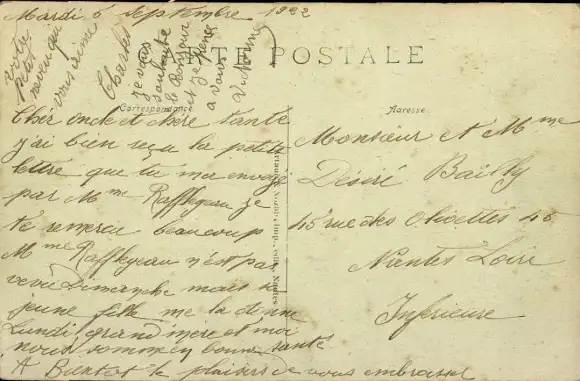 Mardi 5 Septembre 1922
votre
petit
neveu qui
vous aime
Charles
je vous
souhaite
le Bonjour
et je pense
a vous
CARTE POSTALE
Correspondance
Adresse
Cher oncle et chère tante
j'ai bien reçu la petite
lettre que tu m'a envoyé
par Mme Raffligeau je
te remerci beaucoup
Mme Raffligeau n'est pas
venu Dimanche mais sa
jeune fille me la donné
Lundi grand mere et moi
nous sommes en bonne santé
A Bientot le plaisirs de vous embrasser
Monsieur et Mme
Désiré Bailly
45 rue des Olivettes 45
Nantes Loire
Inférieure